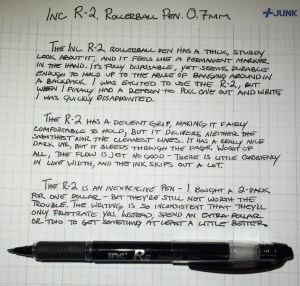 INC R-2 ROLLERBALL PEN 0.7MM
+JUNK
THE INC R-2 ROLLERBALL PEN HAS A THICK, STURDY
LOOK ABOUT IT, AND IT FEELS LIKE A PERMANENT MARKER
IN THE HAND. IT'S FULLY DISPOSABLE, YET SEEMS DURABLE
ENOUGH TO HOLD UP TO THE ABUSE OF BANGING AROUND IN
A BACKPACK. I WAS EXCITED TO USE THE R-2, BUT
WHEN I FINALLY HAD A REASON TO PULL ONE OUT AND WRITE
I WAS QUICKLY DISAPPOINTED.
THE R-2 HAS A DECENT GRIP, MAKING IT FAIRLY
COMFORTABLE TO HOLD, BUT IT DELIVERS NEITHER THE
SMOOTHEST NOR THE CLEANEST LINES. IT HAS A REALLY NICE
DARK INK, BUT IT BLEEDS THROUGH THE PAGE. WORST OF
ALL, THE FLOW IS JUST NO GOOD - THERE IS LITTLE CONSISTENCY
IN LINE WIDTH, AND THE INK SKIPS OUT A LOT.
THE R-2 IS AN INEXPENSIVE PEN - I BOUGHT A 2-PACK
FOR ONE DOLLAR - BUT THEY'RE STILL NOT WORTH THE
TROUBLE. THE WRITING IS SO INCONSISTENT THAT THEY'LL
ONLY FRUSTRATE YOU. INSTEAD, SPEND AN EXTRA DOLLAR
OR TWO TO GET SOMETHING AT LEAST A LITTLE BETTER.
INC. R-2